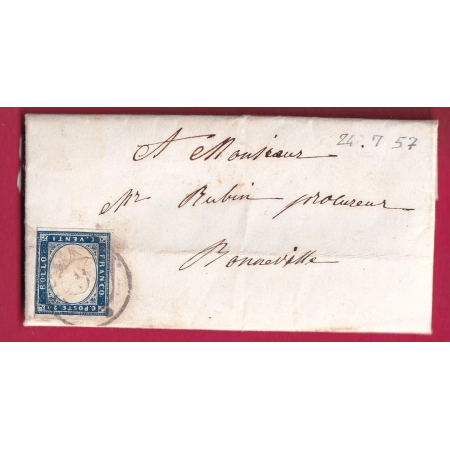 24.7 57
A Monsieur
Mr Rubin procureur
Bonneville
C. VENTI
BOLLO
FRANCO
C. POSTE